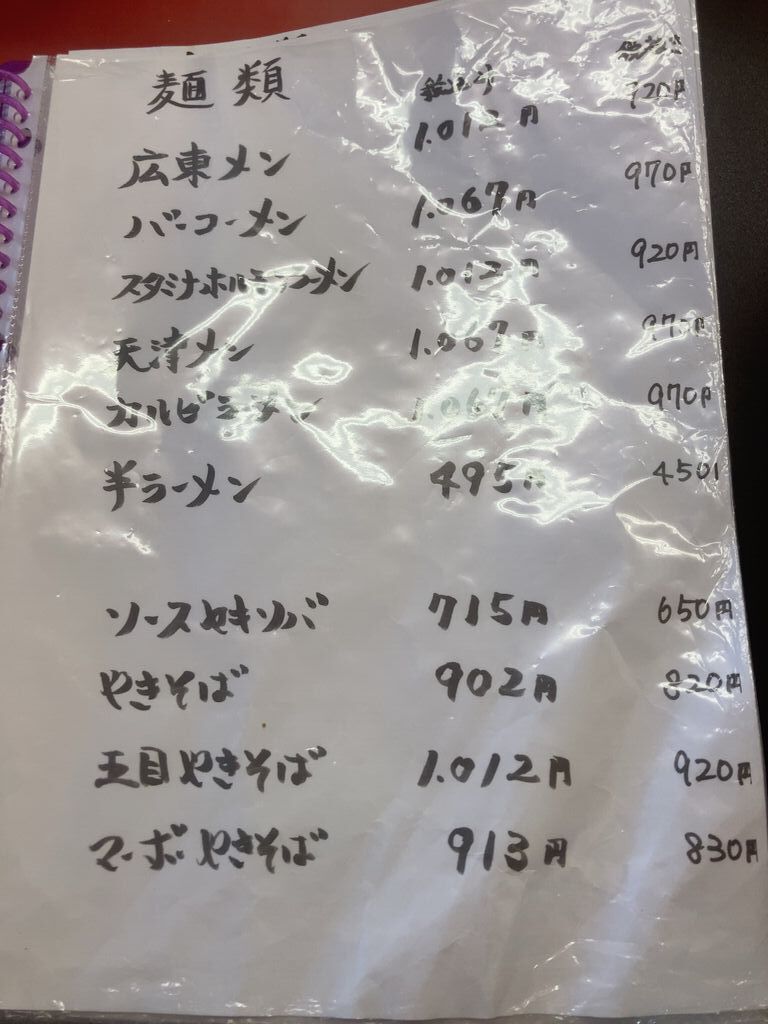 麺類
広東メン 1.012円 920円
パーコーメン 1.067円 970円
スタミナホルモンラーメン 1.012円 920円
天津メン 1.067円 970円
カルビラーメン 1.067円 970円
半ラーメン 495円 450円
ソースヤキソバ 715円 650円
やきそば 902円 820円
五目やきそば 1.012円 920円
マーボやきそば 913円 830円